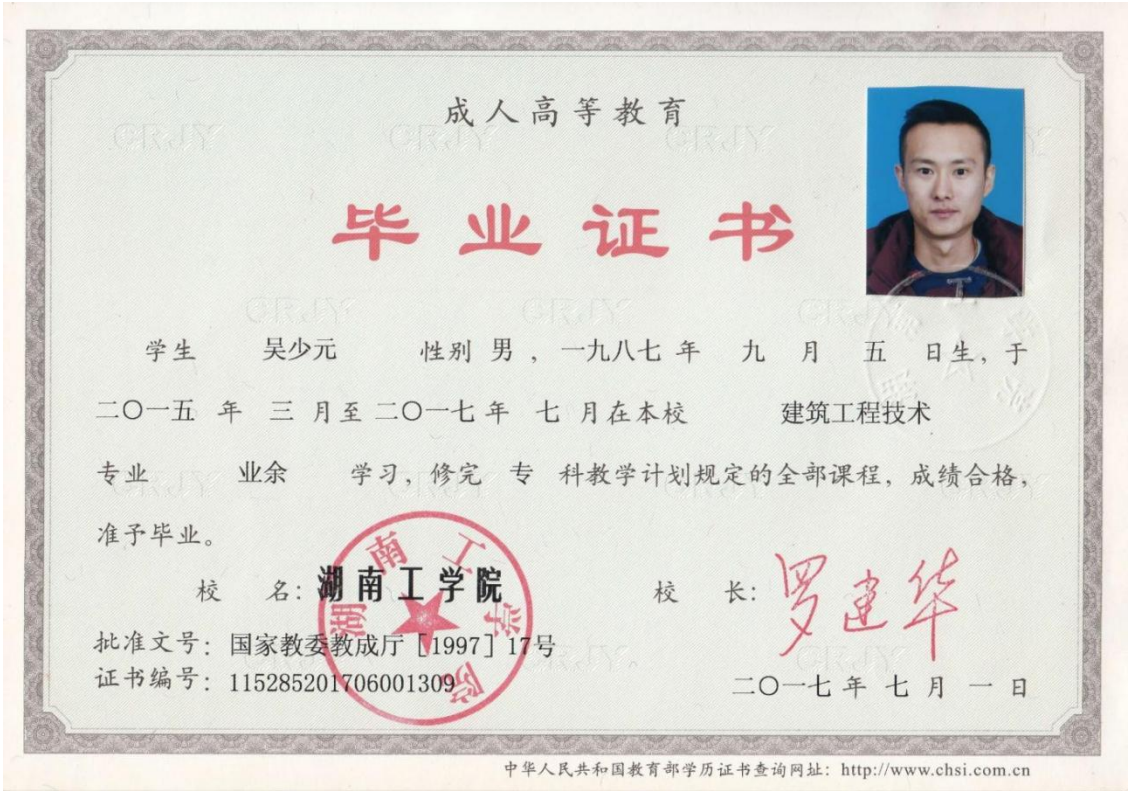 成人高等教育
毕业证书
学生 吴少元 性别 男 , 一九八七 年 九 月 五 日生, 于
二〇一五 年 三 月至 二〇一七 年 七 月在本校 建筑工程技术
专业 业余 学习, 修完 专 科教学计划规定的全部课程, 成绩合格,
准予毕业。
校 名: 湖南工学院 校 长: 罗建华
湖南工学院
批准文号: 国家教委教成厅 [1997] 17号
证书编号: 115285201706001309
二〇一七 年 七 月 一 日
中华人民共和国教育部学历证书查询网址: http://www.chsi.com.cn
CRJY CRJY CRJY
CRJY CRJY CRJY